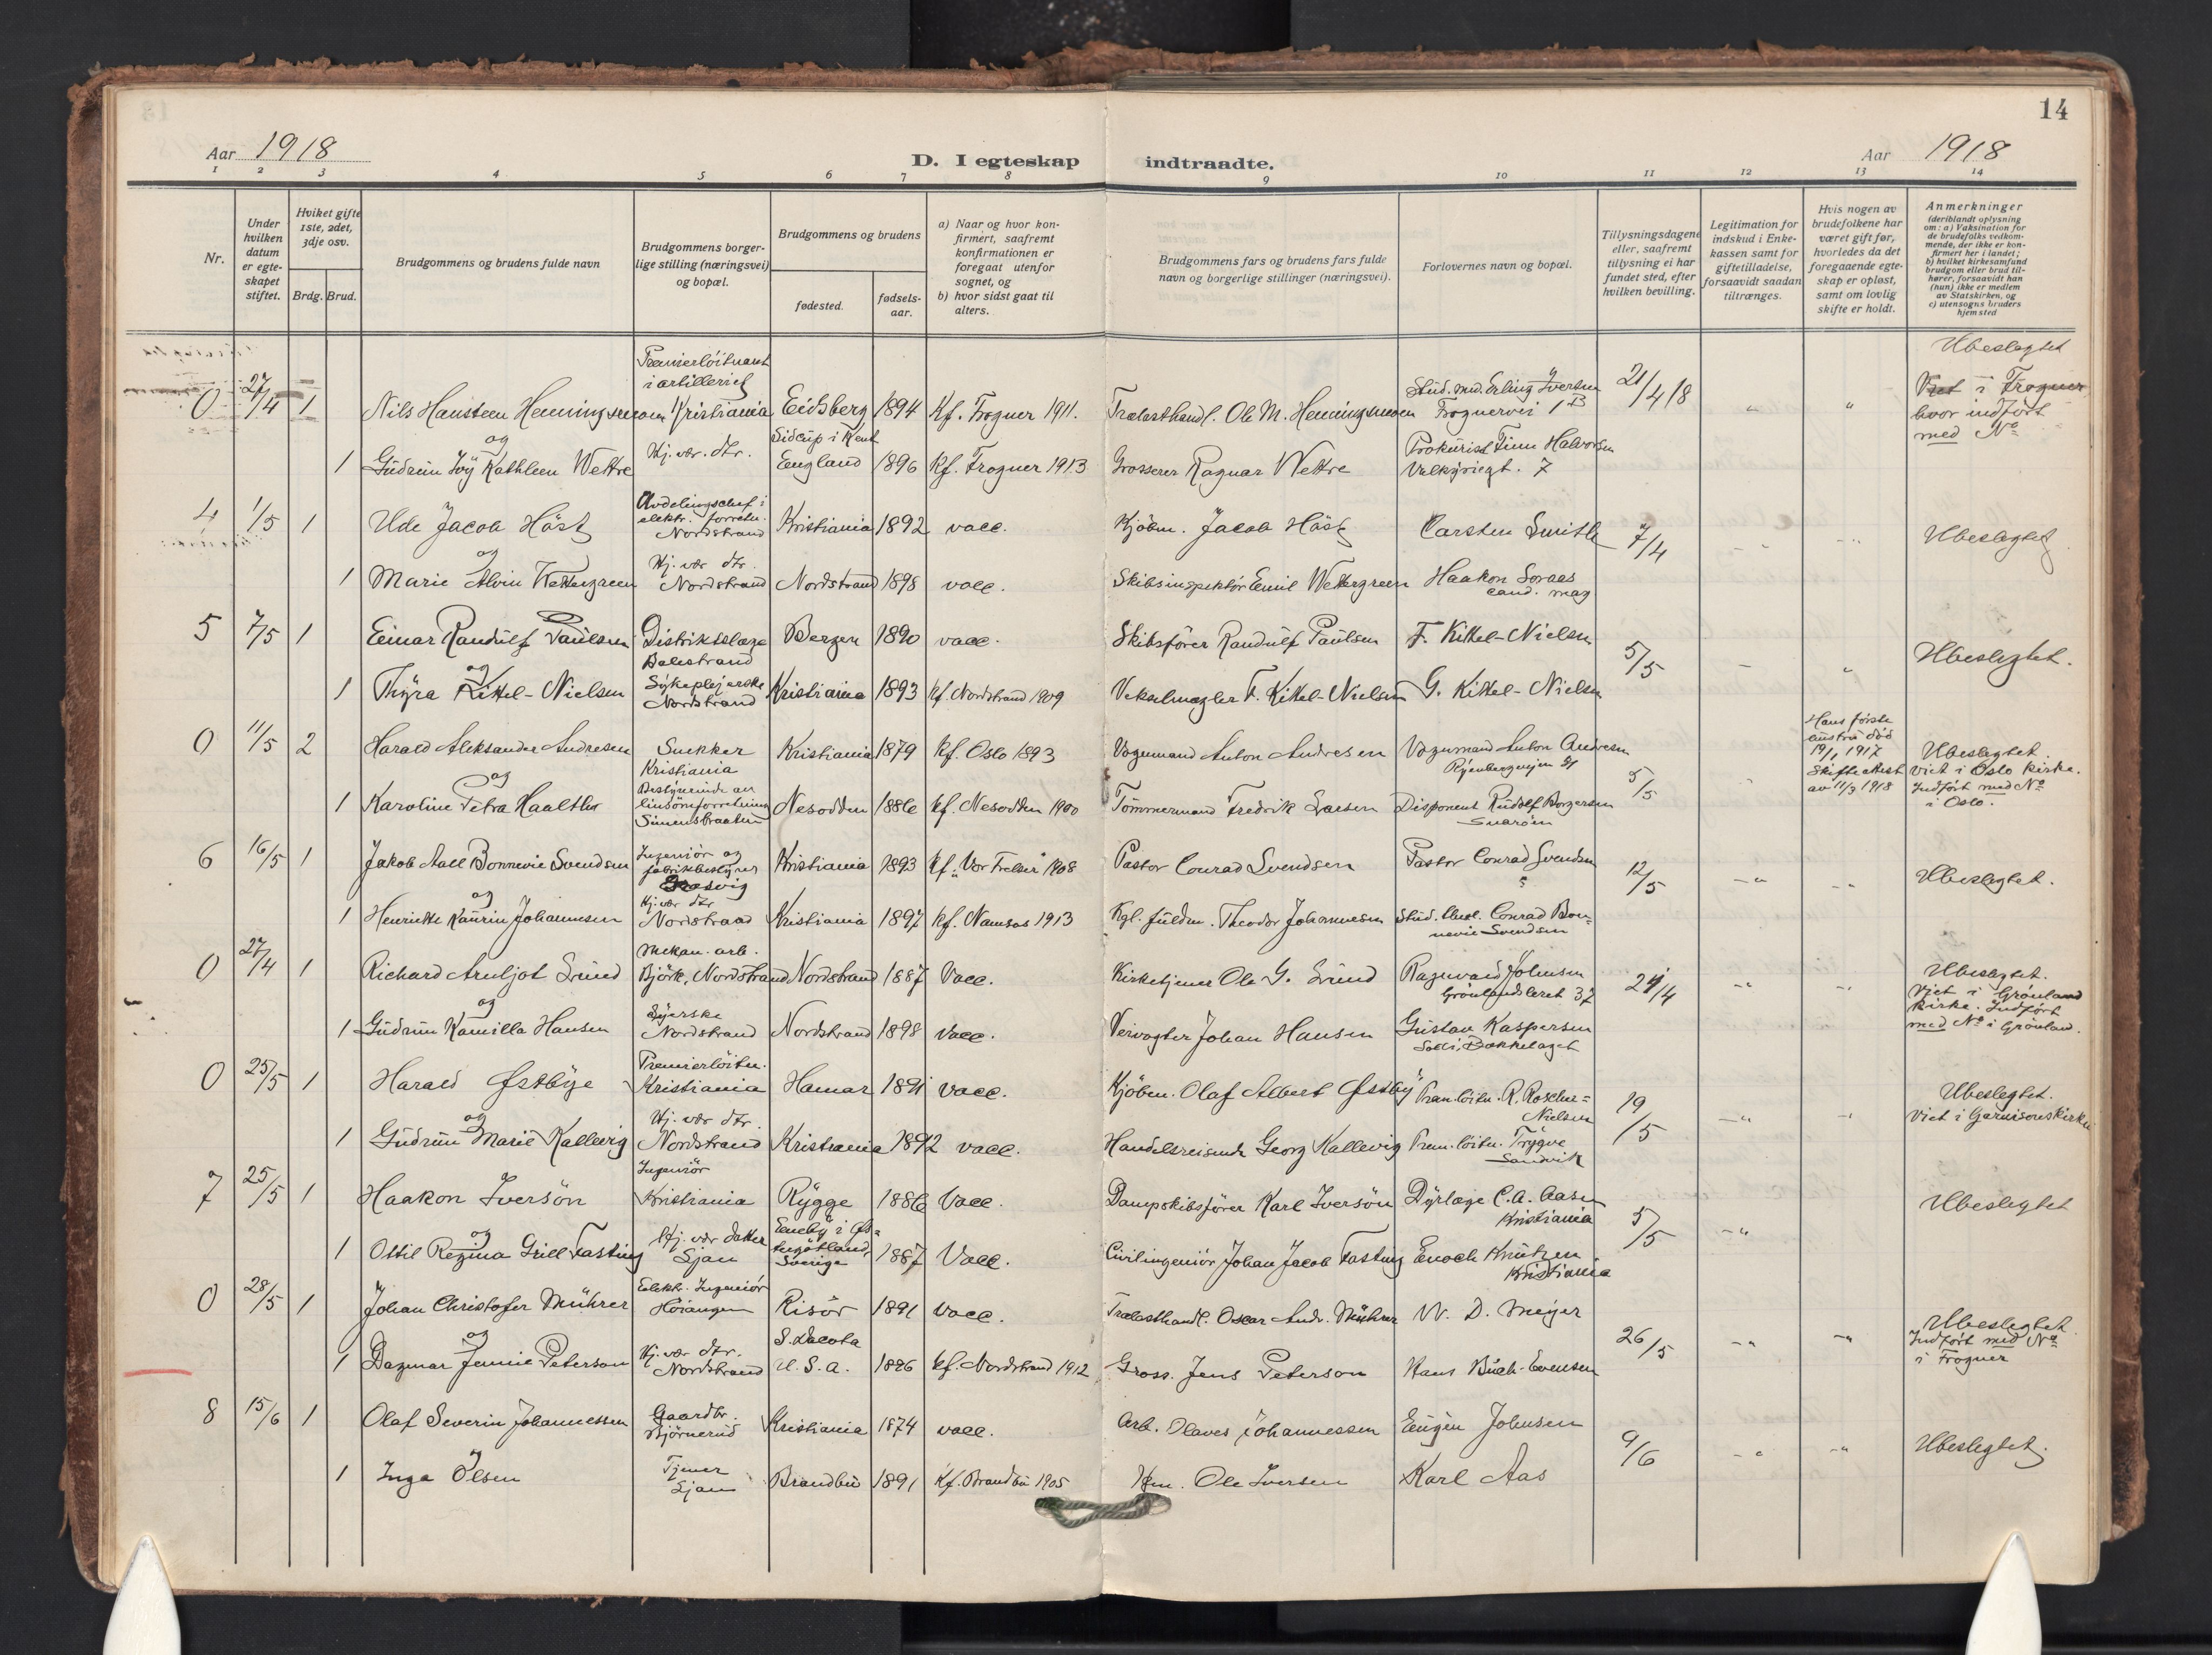 14
Aar 1918
D. I egteskap indtraadte.
Aar 1918
1 2 3 4 5 6 7 8 9 10 11 12 13 14
Nr.
Under hvilken datum er egteskapet stiftet.
Hviket gifte 1ste, 2det, 3dje osv.
Brdg. Brud.
Brudgommens og brudens fulde navn
Brudgommens borgerlige stilling (næringsvei) og bopæl.
Brudgommens og brudens
fødested.
fødselsaar.
a) Naar og hvor konfirmert, saafremt konfirmationen er foregaat utenfor sognet, og
b) hvor sidst gaat til alters.
Brudgommens fars og brudens fars fulde navn og borgerlige stillinger (næringsvei).
Forlovernes navn og bopæl.
Tillysningsdagene eller, saafremt tillysning ei har fundet sted, efter hvilken bevilling.
Legitimation for indskud i Enkekassen samt for giftetilladelse, forsaavidt saadan tiltrænges.
Hvis nogen av brudefolkene har været gift før, hvorledes da det foregaaende egteskap er opløst, samt om lovlig skifte er holdt.
Anmerkninger
(deriblandt oplysning om: a) Vaksination for de brudefolks vedkommende, der ikke er konfirmert her i landet; b) hvilket kirkesamfund brudgom eller brud tilhører, forsaavidt han (hun) ikke er medlem av Statskirken, og c) utensogns bruders hjemsted
0 27/4 1 Nils Hansteen Henningsmoen Premierløitnant i artilleriet Kristiania Eidsberg 1894 Kf. Frogner 1911. Trælasthandl. Ole M. Henningsmoen Stud. med. Erling Iversen Frognervei 1 B 21/4 18 Ubeslegtet Viet i Frogner hvor indført med No
og
1 Gudrun Joy Kathleen Wettre Hj. vær. dtr. Sidcup i Kent England 1896 Kf. Frogner 1913 Grosserer Ragnar Wettre Prokurist Finn Halvorsen Valkyriegt. 7
4 1/5 1 Ude Jacob Høst Avdelingschef i elektr. forretn. Nordstrand Kristiania 1892 vacc. Kjøbm. Jacob Høst Carsten Smith 7/4 Ubeslegtet
og
1 Marie Alvin Wettergreen Hj. vær dtr. Nordstrand Nordstrand 1898 vacc. Skibsinspektør Emil Wettergreen Haakon Soraas cand. mag
5 7/5 1 Einar Randulf Paulsen Distriktslæge Balestrand Bergen 1890 vacc. Skibsfører Randulf Paulsen F. Kittel-Nielsen 5/5 Ubeslegtet.
og
1 Thyra Kittel-Nielsen Sykepleierske Nordstrand Kristiania 1893 kf. Nordstrand 1909 Vekselmægler F. Kittel-Nielsen G. Kittel-Nielsen
0 11/5 2 Harald Aleksander Andresen Snekker Kristiania Kristiania 1879 kf. Oslo 1893 Vognmand Anton Andresen Vognmand Anton Andresen Ryenbergveien 21 5/5 Hans første hustru død 19/1 1917 Skifteattest av 11/3 1918 Ubeslegtet. Viet i Oslo kirke. Indført med No i Oslo.
og
1 Karoline Petra Haalther Bestyrerinde av linsømforretning Simensbraaten Nesodden 1886 kf. Nesodden 1900 Tømmermand Fredrik Larsen Disponent Rudolf Borgersen Snarøen
6 16/5 1 Jakob Aall Bonnevie Svendsen Ingeniør og fabrikbestyrer Kristiania 1893 Kf. "Vor Frelser" 1908 Pastor Conrad Svendsen Pastor Conrad Svendsen 12/5 Ubeslegtet.
og
1 Henriette Kaurin Johannesen Hj. vær dtr Nordstrand Kristiania 1897 kf. Namsos 1913 Kgl. fuldm. Theodor Johannesen Stud. theol. Conrad Bonnevie Svendsen
0 27/4 1 Richard Arnljot Lund Mekan. arb. Bjørk, Nordstrand Nordstrand 1887 Vacc. Kirketjener Ole G. Lund Ragnvald Johnsen Grønlandsleret 37 21/4 Ubeslegtet. Viet i Grønland kirke. Indført med No i Grønland.
og
1 Gudrun Kamilla Hansen Syerske Nordstrand Nordstrand 1898 vacc. Veivogter Johan Hansen Gustav Kaspersen Solli, Bækkelaget
0 25/5 1 Harald Østbye Premierløitn. Kristiania Hamar 1891 vacc. Kjøbm. Olaf Albert Østby Prem. løitn. R. Roscher-Nielsen 19/5 Ubeslegtet. Viet i Garnisonskirken
og
1 Gudrun Marie Kallevig Hj. vær dtr. Nordstrand Kristiania 1892 vacc. Handelsreisende Georg Kallevig Prem. løitn. Trygve Sandvik
7 25/5 1 Haakon Iversøn Ingeniør Kristiania Rygge 1886 Vacc. Dampskibsfører Karl Iversøn Dyrlæge C.A. Aasen Kristiania 5/5 Ubeslegtet
og
1 Ottil Regina Grill Fasting Hj. vær datter Ljan Eneby i Østergøtland, Sverige 1887 Vacc. Civilingeniør Johan Jacob Fasting Enoch Knutzen Kristiania
0 28/5 1 Johan Christofer Mührer Elektr. Ingeniør Høiangen Risør 1891 Vacc. Trælasthandl. Oscar Andr. Mührer W. D. Meyer 26/5 Ubeslegtet Indført med No i Frogner
og
1 Dagmar Jennie Peterson Hj. vær dtr. Nordstrand S. Dacota U.S.A. 1896 kf. Nordstrand 1912 Gross. Jens Peterson Hans Buch-Evensen
8 15/6 1 Olaf Severin Johannessen Gaardbr. Bjørnerud Kristiania 1874 vacc. Arb. Olaves Johannessen Eugen Johnsen 9/6 Ubeslegtet.
og
1 Inga Olsen Tjener Ljan Brandbu 1891 Kf. Brandbu 1905 Ole Iversen Karl Aas